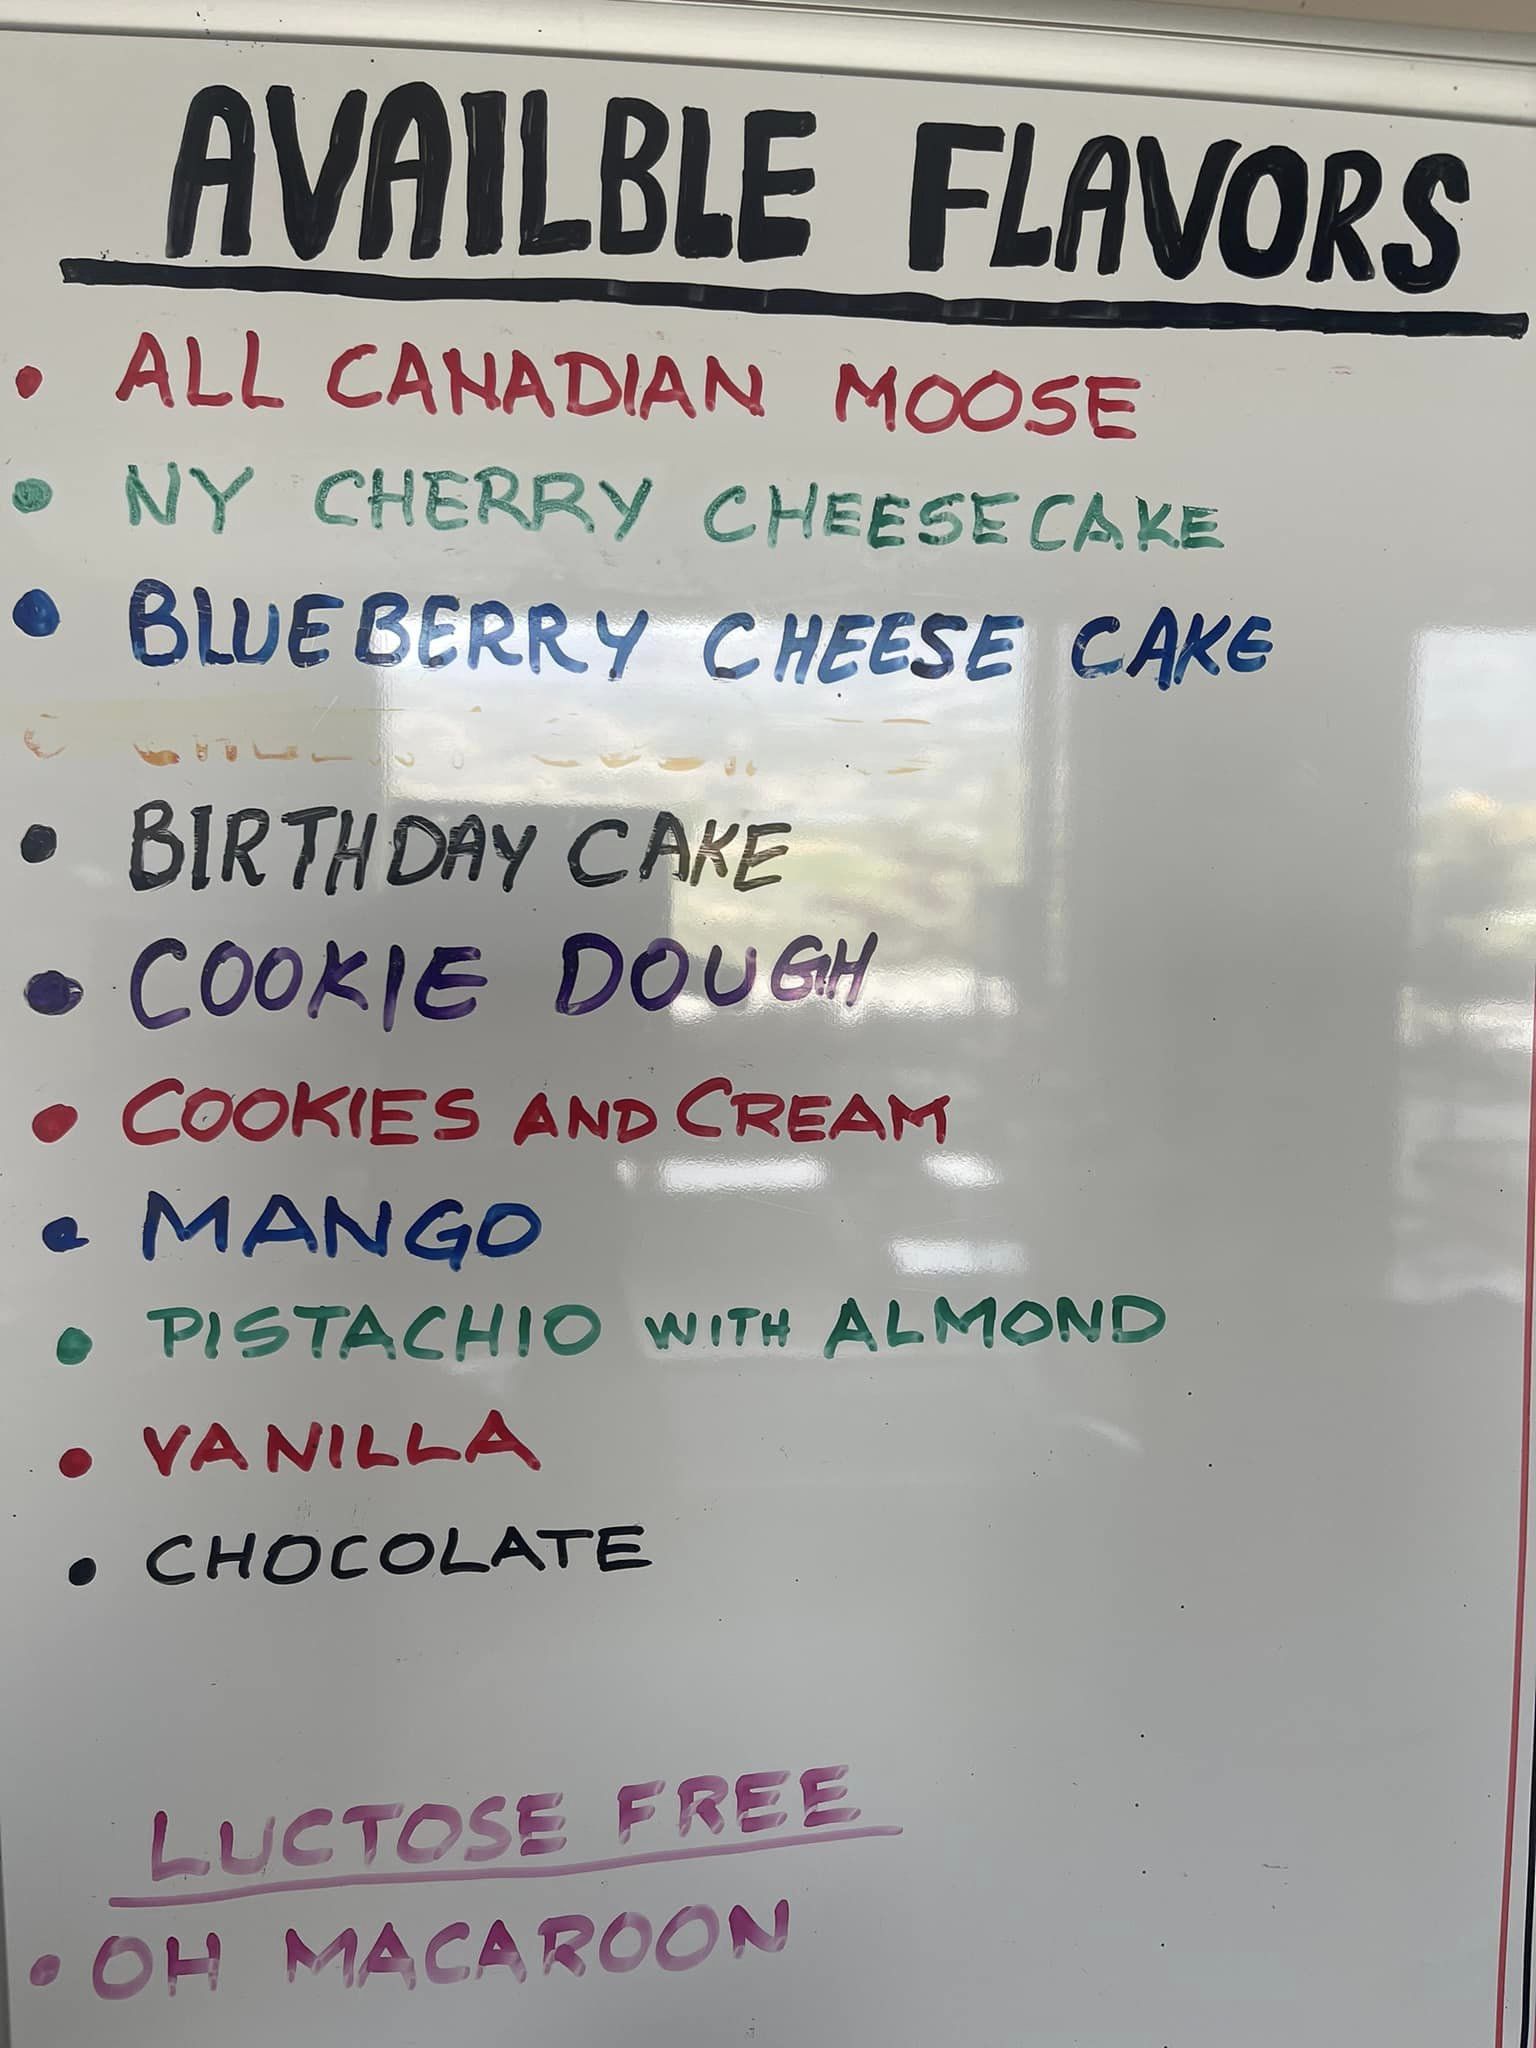 AVAILBLE FLAVORS
• ALL CANADIAN MOOSE
• NY CHERRY CHEESECAKE
• BLUEBERRY CHEESE CAKE
• BIRTHDAY CAKE
• COOKIE DOUGH
• COOKIES AND CREAM
• MANGO
• PISTACHIO WITH ALMOND
• VANILLA
• CHOCOLATE
LUCTOSE FREE
• OH MACAROON